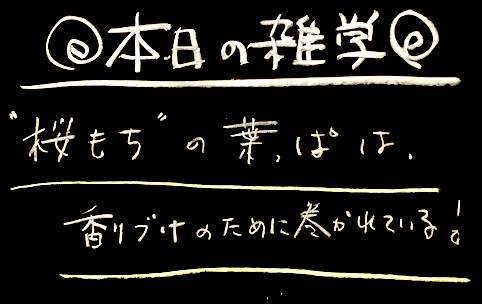 @本日の雑学@
"桜もち"の葉っぱは、
香りづけのために巻かれている!